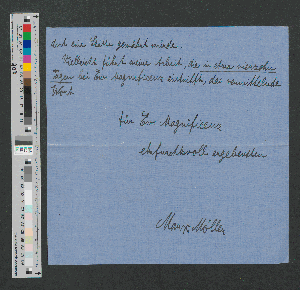 und eine Stelle gewährt würde.
Vielleicht findet meine Arbeit, die in etwa vierzehn
Tagen bei Ew Magnificenz eintrifft, das vermittelnde
Wort.
für Ew Magnificenz
ehrfurchtsvoll ergebensten
Marx Möller